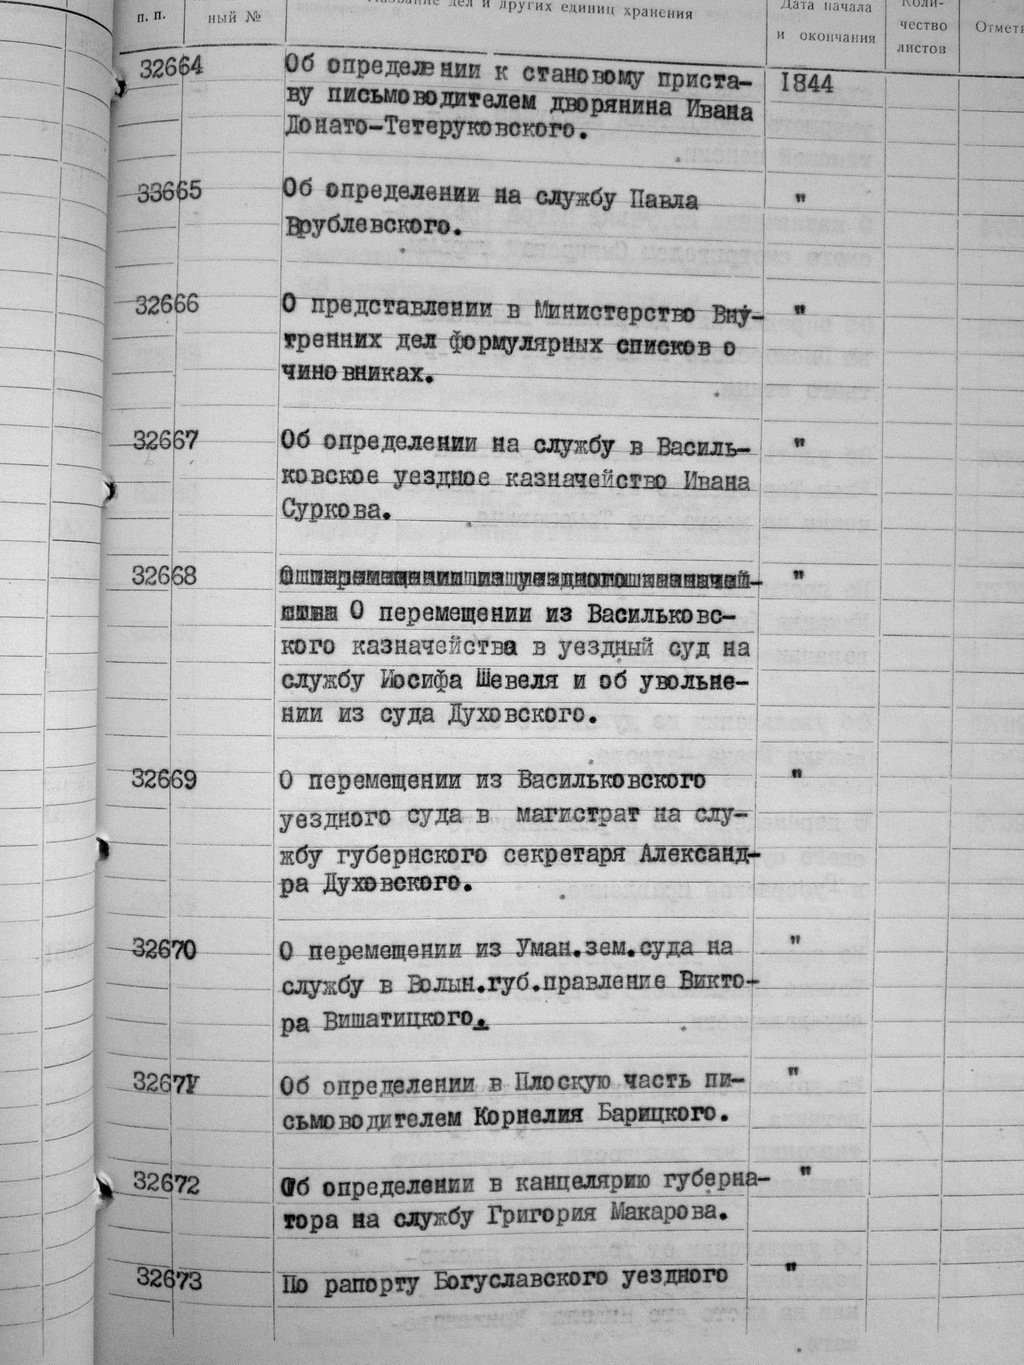 п. п.
ный №
Название дел и других единиц хранения
Дата начала
и окончания
Коли-
чество
листов
Отметк
32664 Об определении к становому приста- 1844
ву письмоводителем дворянина Ивана
Донато-Тетеруковского.
33665 Об определении на службу Павла "
Врублевского.
32666 О представлении в Министерство Вну- "
тренних дел формулярных списков о
чиновниках.
32667 Об определении на службу в Василь- "
ковское уездное казначейство Ивана
Суркова.
32668 "
О перемещении из Васильковс-
кого казначейства в уездный суд на
службу Иосифа Шевеля и об увольне-
нии из суда Духовского.
32669 О перемещении из Васильковского "
уездного суда в магистрат на слу-
жбу губернского секретаря Александ-
ра Духовского.
32670 О перемещении из Уман.зем.суда на "
службу в Волын.губ.правление Викто-
ра Вишатицкого.
32671 Об определении в Плоскую часть пи- "
сьмоводителем Корнелия Барицкого.
32672 Об определении в канцелярию губерна- "
тора на службу Григория Макарова.
32673 По рапорту Богуславского уездного "